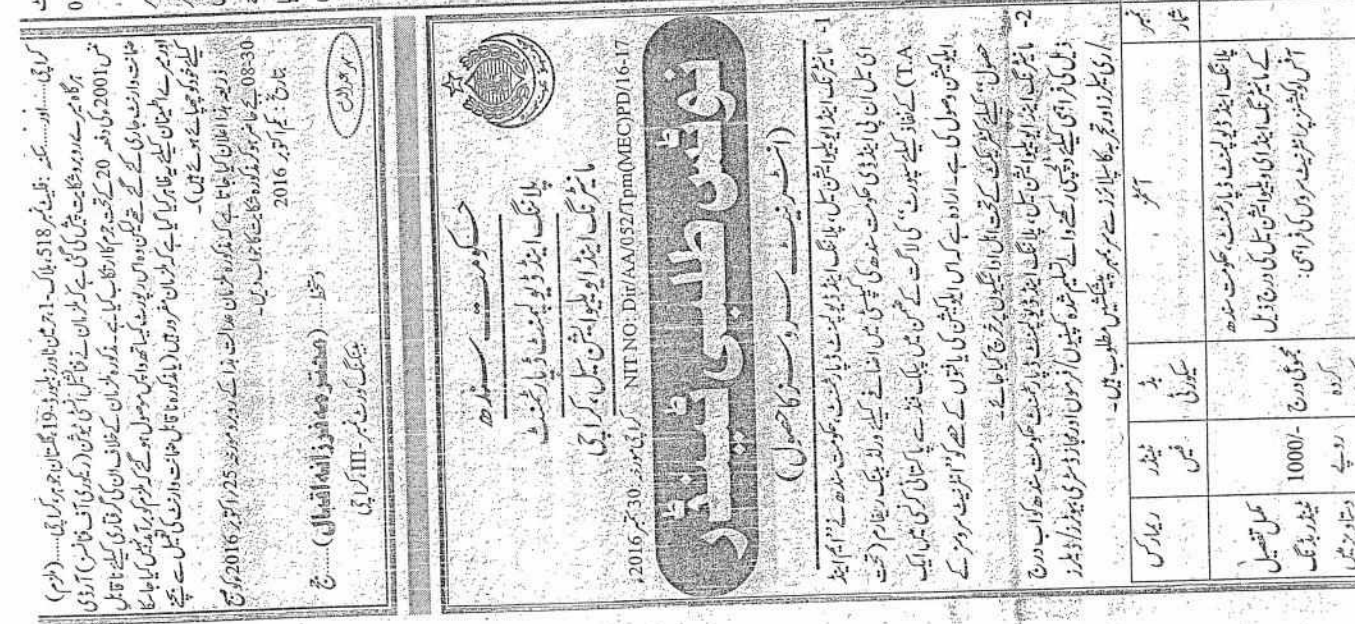 کراچی.....اور.....سکنہ فلیٹ نمبر 518، بلاک-1، حرمین ٹاورز بلیوارڈ 19، گلستان جوہر کراچی.....(ملزم)
ہرگاہ میرے روبرو شکایت پیش کی گئی ہے کہ ملزمان نے فنانشل انسٹی ٹیوشن (ریکوری آف فنانس) آرڈی
ننس 2001 کی دفعہ 20 کے تحت جرم کا ارتکاب کیا ہے۔ مذکورہ ملزمان کے خلاف اور ان کی گرفتاری کیلئے ناقابل
ضمانت وارنٹ جاری کئے گئے تھے لیکن وہ اس رپورٹ کیساتھ واپس موصول ہوئے کہ ملزم کو برآمد نہیں کیا جا سکا
اور میرے اطمینان کیلئے یہ ظاہر کیا گیا ہے کہ ملزمان مفرور ہیں (یا مذکورہ ناقابل ضمانت وارنٹ کی تعمیل سے بچنے
کیلئے خود کو چھپائے ہوئے ہیں)۔
ذریعہ ہذا اعلان کیا جاتا ہے کہ مذکورہ ملزمان عدالت ہذا کے روبرو مورخہ 25/اکتوبر 2016ء کو صبح
08-30 بجے حاضر ہو کر مذکورہ شکایت کا جواب دیں۔
تاریخ: یکم اکتوبر 2016
مہر عدالت
دستخط
جج
بینکنگ کورٹ نمبر-III، کراچی
حکومت سندھ
پلاننگ اینڈ ڈیولپمنٹ ڈپارٹمنٹ
مانیٹرنگ اینڈ ایویلیوایشن سیل، کراچی
NIT NO: Dir/AA/052/Tpm(MEC)PD/16-17 کراچی مورخہ 30 ستمبر 2016ء
نوٹس طلبی ٹینڈر
(انٹرنیٹ سروسز کا حصول)
1- مانیٹرنگ اینڈ ایویلیوایشن سیل، پلاننگ اینڈ ڈیولپمنٹ ڈپارٹمنٹ، حکومت سندھ نے "ایم اینڈ
ای سیل ان پی اینڈ ڈی حکومت سندھ کی کیپسٹی میں اضافے کیلئے ورلڈ بینک ریفارم (تحت
TA) کے نفاذ کیلئے سپورٹ" کی لاگت کے ضمن میں پبلک فنڈ سے پاکستانی کرنسی میں ایک
ایلوکیشن وصول کی ہے۔ ارادہ ہے کہ اس ایلوکیشن کی یافتوں کے حصے کو "انٹرنیٹ سروسز کے
حصول" کیلئے کنٹریکٹ کے تحت اہل ادائیگیوں پر خرچ کیا جائے۔
2- مانیٹرنگ اینڈ ایویلیوایشن سیل، پلاننگ اینڈ ڈیولپمنٹ ڈپارٹمنٹ حکومت سندھ کو اب درج
ذیل کی فراہمی کیلئے دلچسپی رکھنے والے تسلیم شدہ کمپنیوں/فرموں اور مجاز ڈسٹری بیوٹرز/ڈیلرز
/ری سیلرز اور تجربہ کار سپلائرز سے سربمہر پیشکشیں مطلوب ہیں۔
نمبر شمار | آئٹمز | بڈ سیکورٹی | ٹینڈر فیس | ریمارکس
پلاننگ اینڈ ڈیولپمنٹ ڈپارٹمنٹ، حکومت سندھ | مجموعی درج | 1000/- | مکمل تفصیل
کے مانیٹرنگ اینڈ ای ویلیوایشن سیل کی درج ذیل | کردہ | روپے | ٹینڈر/بڈنگ
آفس لوکیشنز پر انٹرنیٹ سروس کی فراہمی: | دستاویز میں